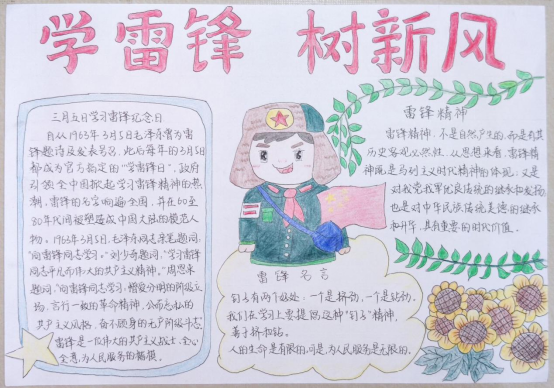 学雷锋 树新风
三月五日学习雷锋纪念日
自从1963年3月5日毛泽东曾为雷
锋题诗及发表名言,此后每年的3月5日
都成为官方指定的“学雷锋日”,政府
引领全中国掀起学习雷锋精神的热
潮,雷锋的名字响遍全国,并在60至
80年代间被塑造成中国大陆的模范人
物。1963年3月5日,毛泽东同志亲笔题词:
“向雷锋同志学习。”刘少奇题词:“学习雷锋
同志平凡而伟大的共产主义精神。”周恩来
题词:“向雷锋同志学习,憎爱分明的阶级立
场,言行一致的革命精神,公而忘私的
共产主义风格,奋不顾身的无产阶级斗志。
雷锋是一位伟大的共产主义战士,全心
全意,为人民服务的楷模。
雷锋精神
雷锋精神,不是自然产生的,而是有其
历史客观必然性。从思想来看,雷锋精
神既是马列主义时代精神的体现,又是
对我党我军优良传统的继承和发扬,
也是对中华民族传统美德的继承
和升华,具有重要的时代价值。
雷锋名言
钉子有两个好处:一个是挤劲,一个是钻劲,
我们在学习上要提倡这种“钉子”精神,
善于挤和钻。
人的生命是有限的,可是,为人民服务是无限的。